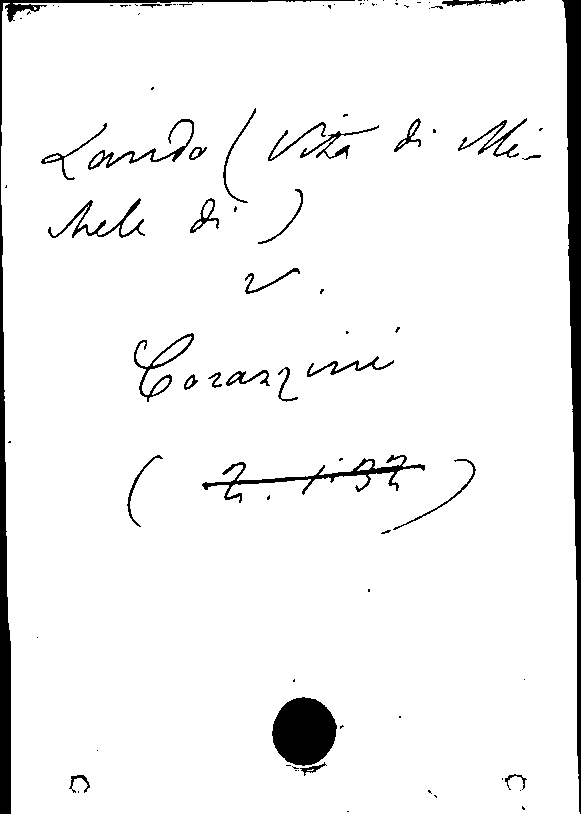 Lando (Vita di Mi-
chele di)
v.
Corazzini
(Z. 1.32)